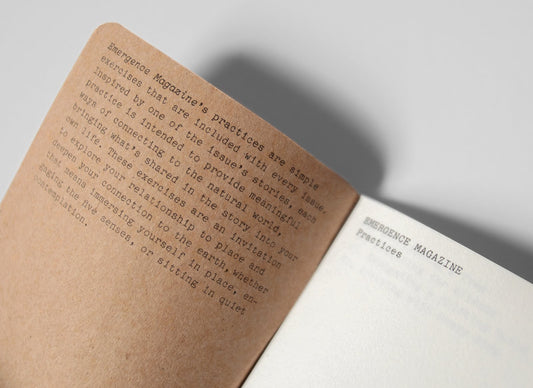 Emergence Magazine's practices are simple
exercises that are included with every issue.
Inspired by one of the issue's stories, each
practice is intended to provide meaningful
ways of connecting to the natural world,
bringing what's shared in the story into your
own life. These exercises are an invitation
to explore your relationship to place and
deepen your connection to the earth, whether
that means immersing yourself in place, en-
gaging the five senses, or sitting in quiet
contemplation.
EMERGENCE MAGAZINE
Practices